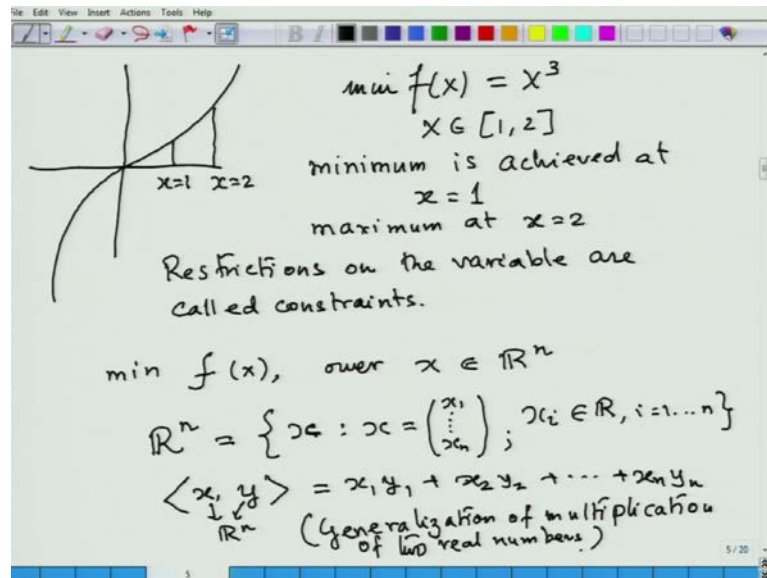 File Edit View Insert Actions Tools Help
min f(x) = x³
x ∈ [1, 2]
x=1 x=2
minimum is achieved at
x = 1
maximum at x=2
Restrictions on the variable are
called constraints.
min f(x), over x ∈ ℝⁿ
ℝⁿ = { x : x = (x₁ ⋮ xₙ) ; xᵢ ∈ ℝ, i=1...n }
⟨x, y⟩ = x₁y₁ + x₂y₂ + ··· + xₙyₙ
↓ ↙
ℝⁿ (Generalization of multiplication
of two real numbers.)
5/20
5